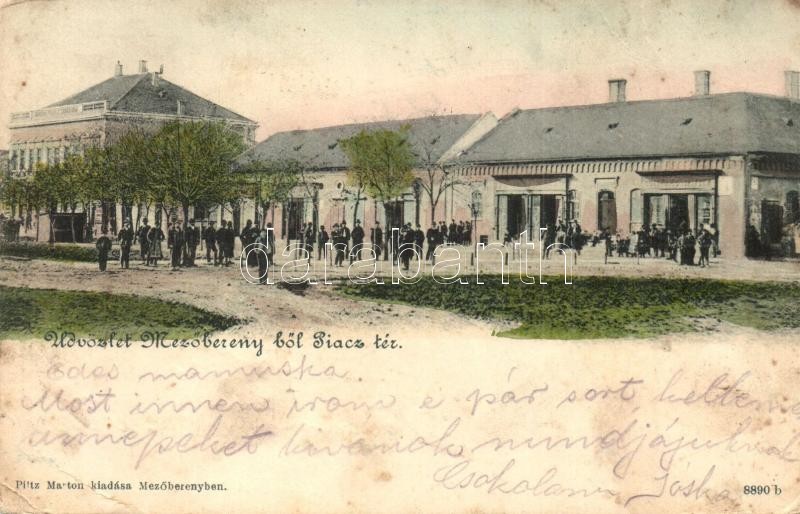 darabanth
Üdvözlet Mezőbereny ből Piacz tér.
Édes mamuska.
Most innen irom e pár sort kellemes
ünnepeket kivánok mindjájuknak
Csokolom Jóska
Piltz Marton kiadása Mezőberenyben.
8890 b